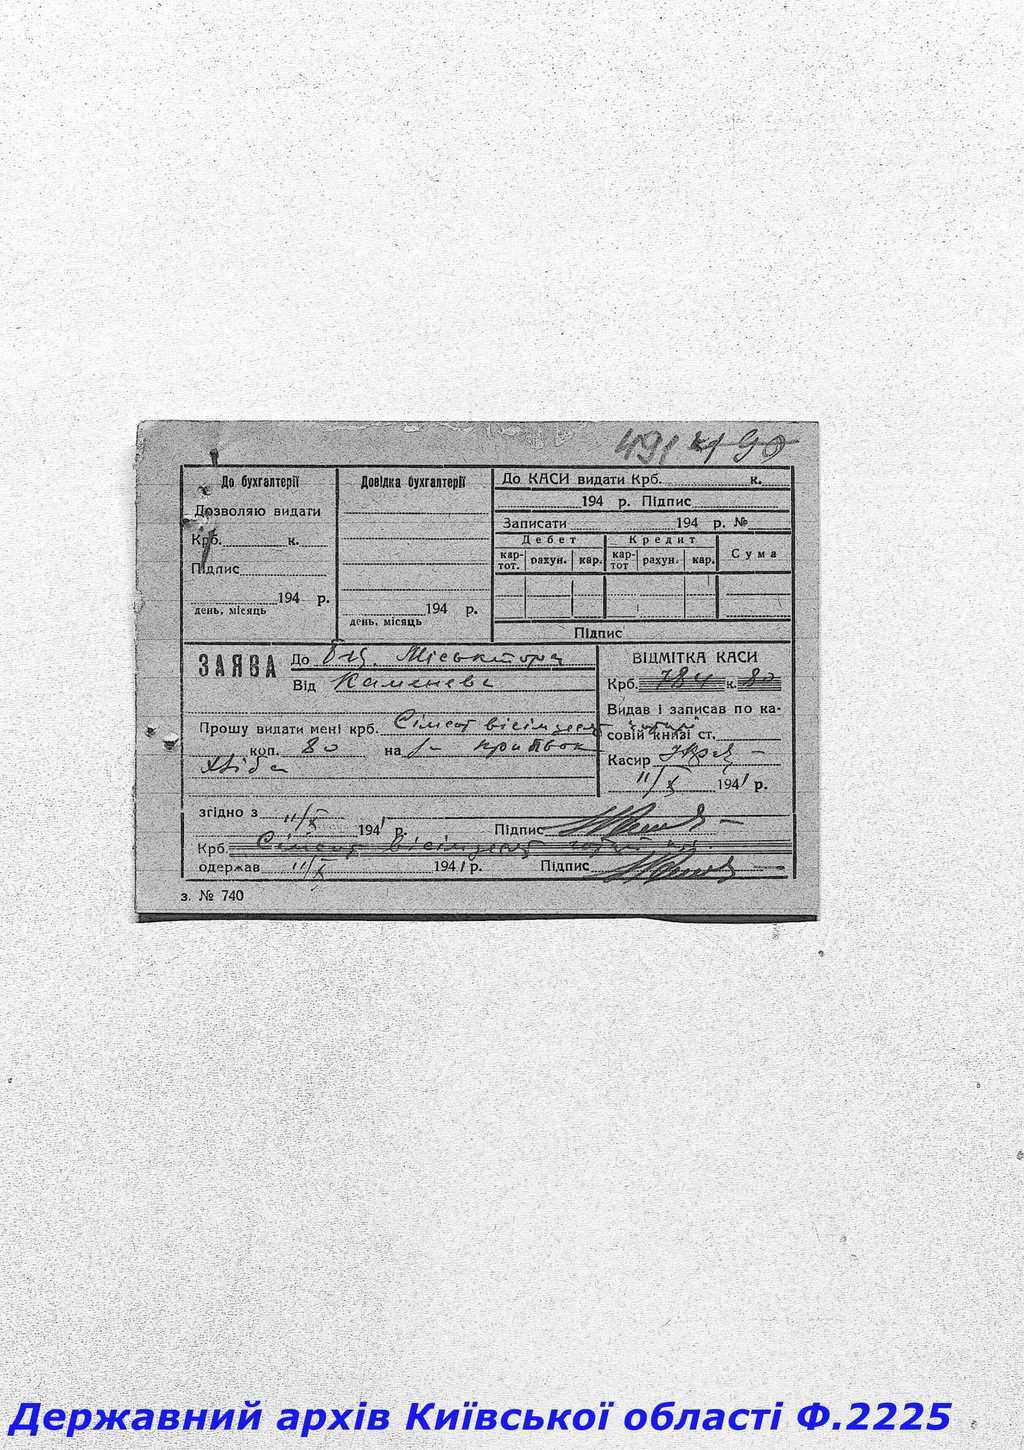 491 490
До бухгалтерії
Дозволяю видати
Крб. к.
Підпис
194 р.
день, місяць
Довідка бухгалтерії
194 р.
день, місяць
До КАСИ видати Крб. к.
194 р. Підпис
Записати 194 р. №
Дебет Кредит Сума
кар-тот. рахун. кар. кар-тот рахун. кар.
Підпис
ЗАЯВА До
Від Каменева
Прошу видати мені крб. Сімсот вісімдесят чотирі
коп. 80 на
Хліба
ВІДМІТКА КАСИ
Крб. 784 к. 80
Видав і записав по ка-
совій книзі ст.
Касир
11/X 1941 р.
згідно з 11/X 1941 р. Підпис
Крб. Сімсот вісімдесят
одержав 11/X 1941 р. Підпис
з. № 740
Державний архів Київської області Ф.2225